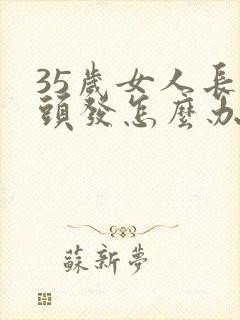 35歲女人長
頭發怎麼办
蘇新夢